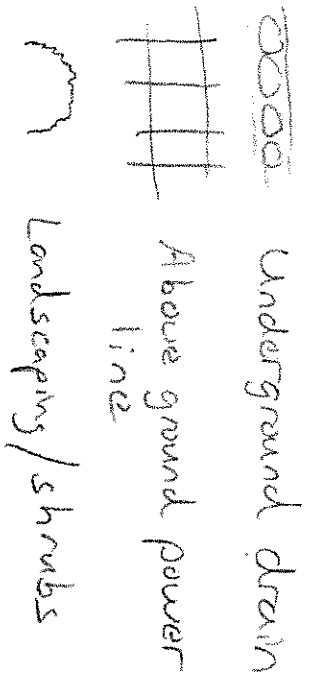 Underground drain
Above ground power
line
Landscaping/shrubs